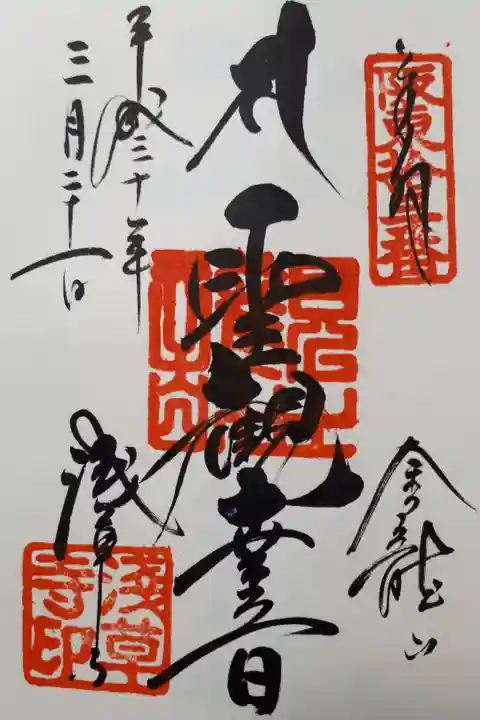 奉拝
阪東十三番
金龍山
聖観世音
平成三十年
三月二十一日
浅草寺
淺草寺印